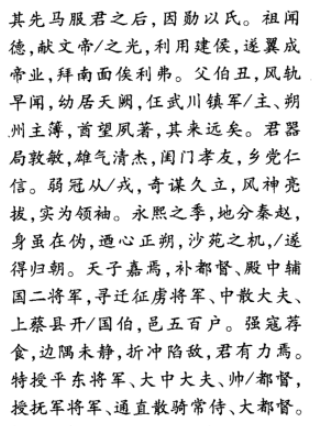 其先马服君之后,因勋以氏。祖闻
德,献文帝/之光,利用建侯,遂翼成
帝业,拜南面俟利弗。父伯丑,风轨
早闻,幼居天阙,任武川镇军/主、朔
州主簿,首望夙著,其来远矣。君器
局敦敏,雄气清杰,闺门孝友,乡党仁
信。弱冠从/戎,奇谋久立,风神亮
拔,实为领袖。永熙之季,地分秦赵,
身虽在伪,迺心正朔,沙苑之机,/遂
得归朝。天子嘉焉,补都督、殿中辅
国二将军,寻迁征虏将军、中散大夫、
上蔡县开/国伯,邑五百户。强寇荐
食,边隅未静,折冲陷敌,君有力焉。
特授平东将军、大中大夫、帅/都督,
授抚军将军、通直散骑常侍、大都督。